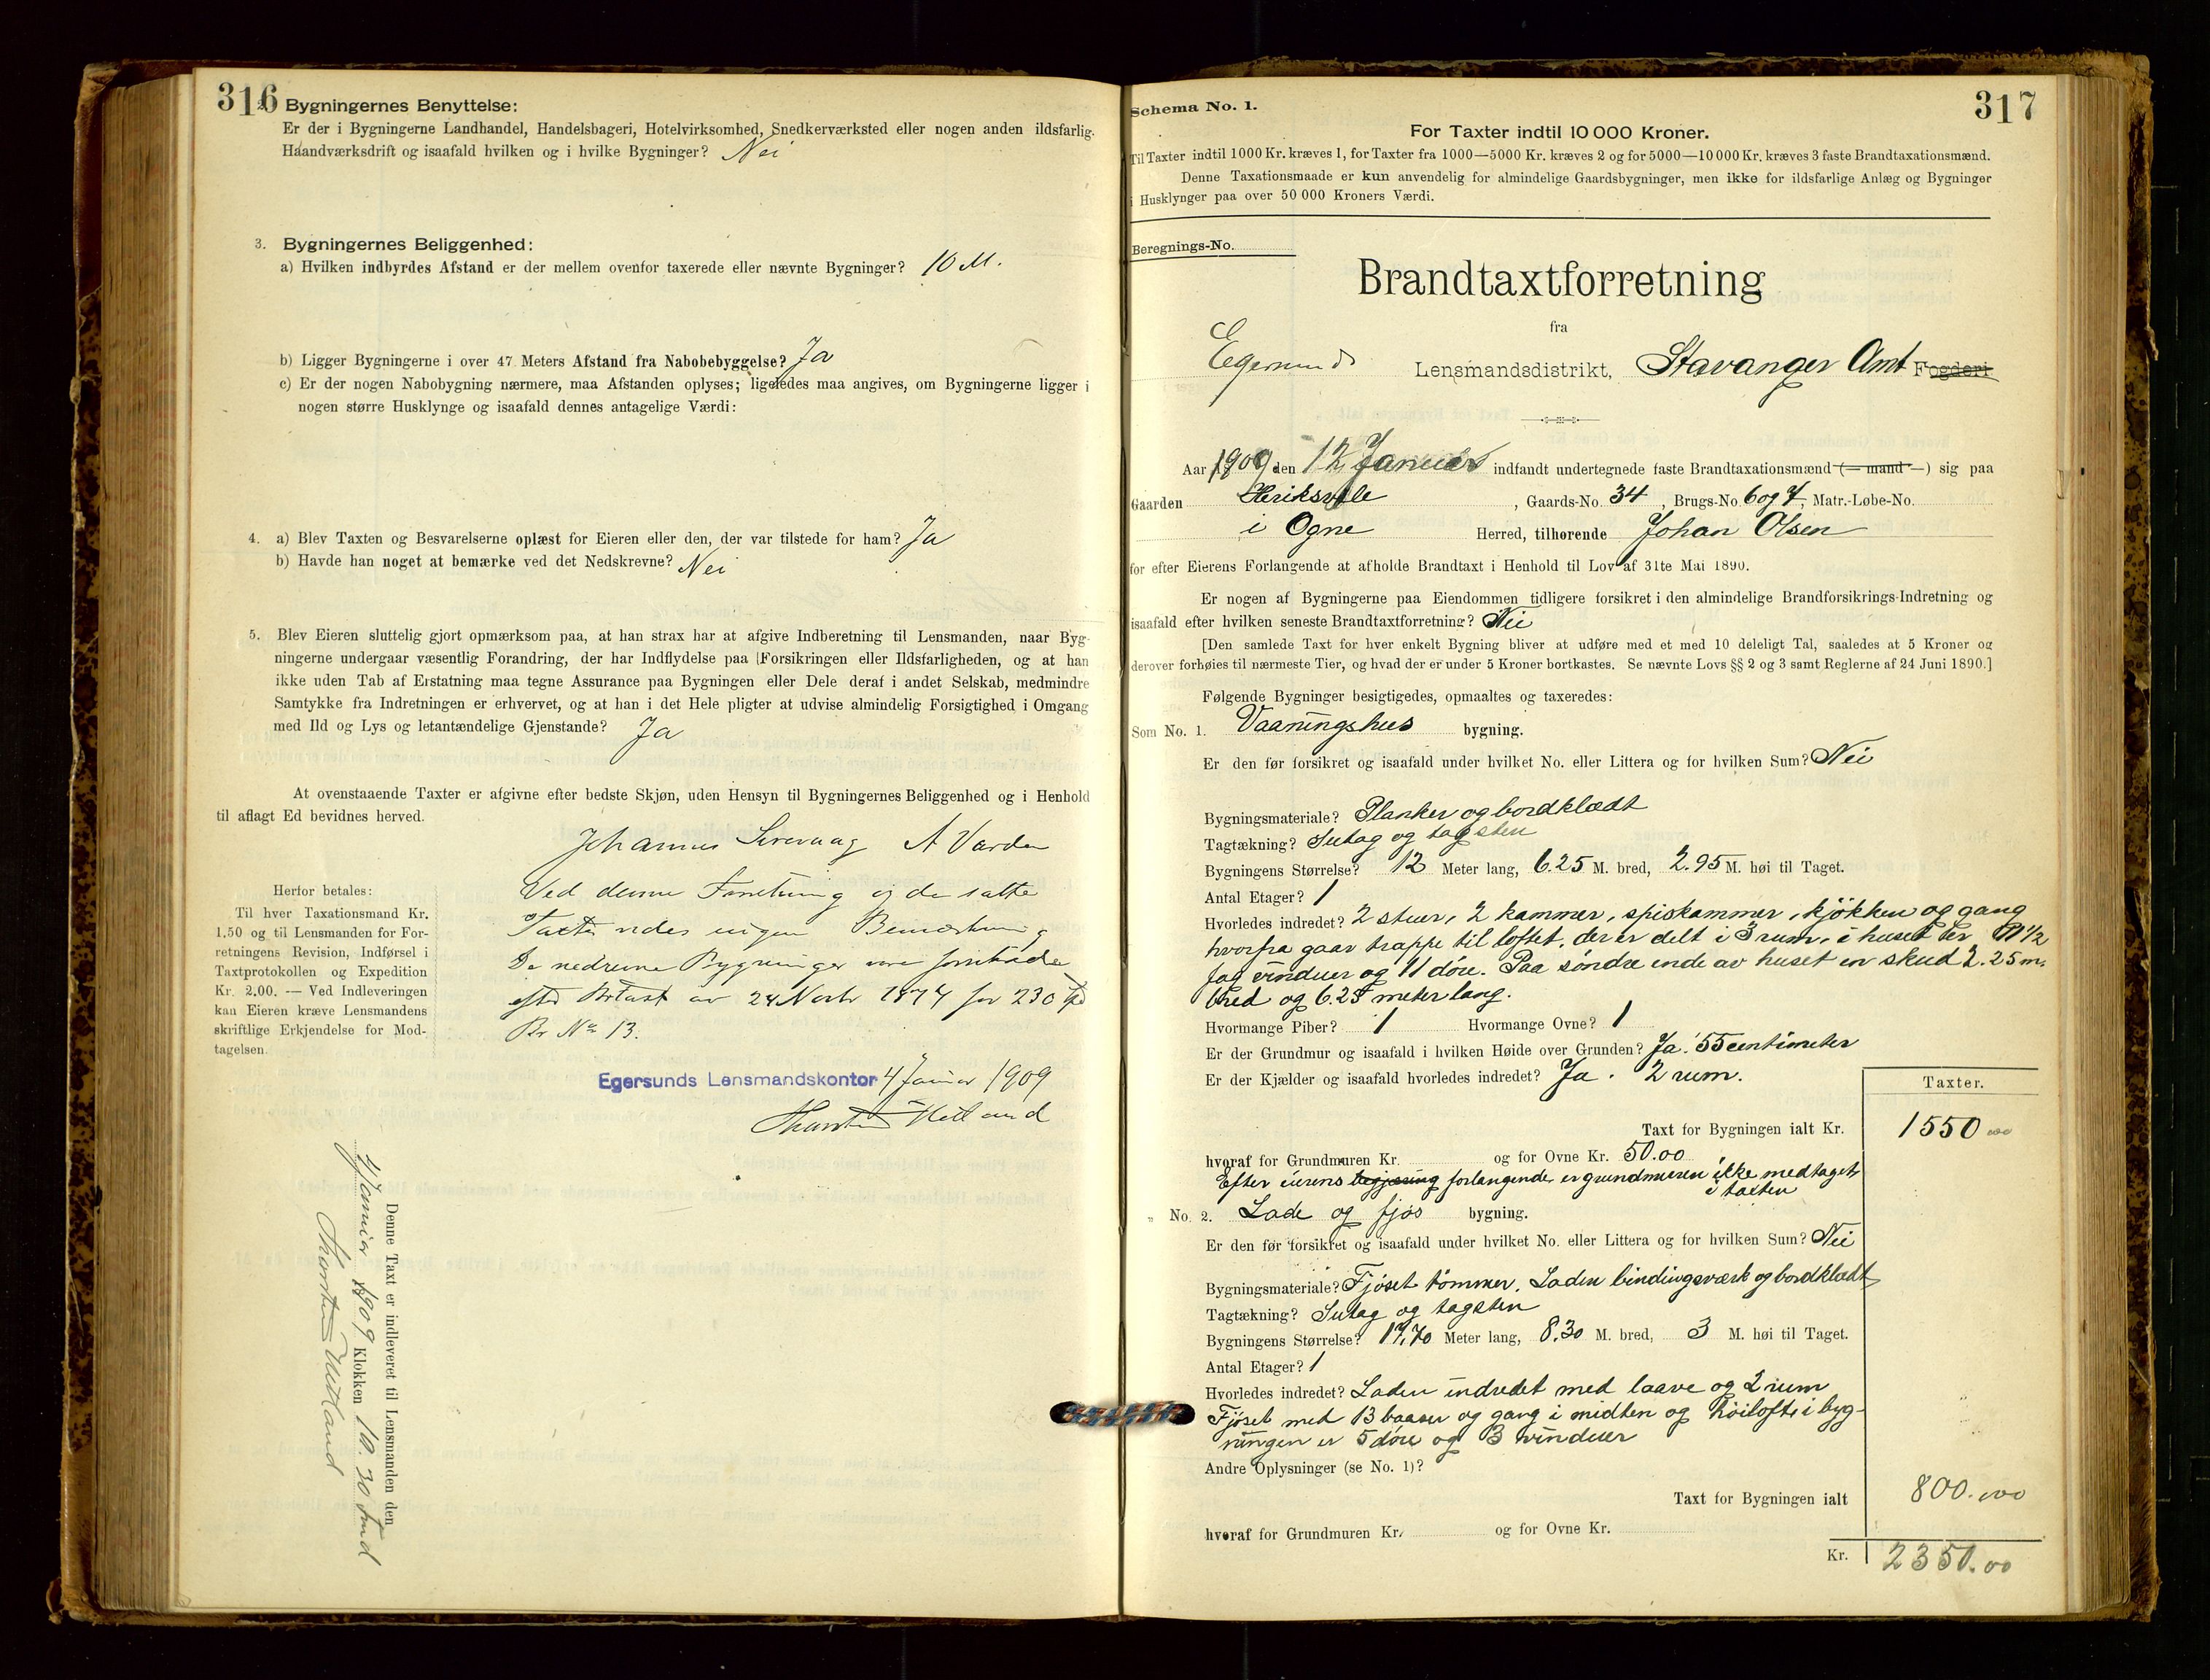 316
Bygningernes Benyttelse:
Er der i Bygningerne Landhandel, Handelsbageri, Hotelvirksomhed, Snedkerværksted eller nogen anden ildsfarlig.
Haandværksdrift og isaafald hvilken og i hvilke Bygninger? Nei
3. Bygningernes Beliggenhed:
a) Hvilken indbyrdes Afstand er der mellem ovenfor taxerede eller nævnte Bygninger? 10 M.
b) Ligger Bygningerne i over 47 Meters Afstand fra Nabobebyggelse? Ja
c) Er der nogen Nabobygning nærmere, maa Afstanden oplyses; ligeledes maa angives, om Bygningerne ligger i
nogen større Husklynge og isaafald dennes antagelige Værdi:
4. a) Blev Taxten og Besvarelserne oplæst for Eieren eller den, der var tilstede for ham? Ja
b) Havde han noget at bemærke ved det Nedskrevne? Nei
5. Blev Eieren sluttelig gjort opmærksom paa, at han strax har at afgive Indberetning til Lensmanden, naar Byg-
ningerne undergaar væsentlig Forandring, der har Indflydelse paa Forsikringen eller Ildsfarligheden, og at han
ikke uden Tab af Erstatning maa tegne Assurance paa Bygningen eller Dele deraf i andet Selskab, medmindre
Samtykke fra Indretningen er erhvervet, og at han i det Hele pligter at udvise almindelig Forsigtighed i Omgang
med Ild og Lys og letantændelige Gjenstande? Ja
At ovenstaaende Taxter er afgivne efter bedste Skjøn, uden Hensyn til Bygningernes Beliggenhed og i Henhold
til aflagt Ed bevidnes herved.
Johannes Sirevaag A Varden
Herfor betales:
Til hver Taxationsmand Kr.
1.50 og til Lensmanden for For-
retningens Revision, Indførsel i
Taxtprotokollen og Expedition
Kr. 2.00. — Ved Indleveringen
kan Eieren kræve Lensmandens
skriftlige Erkjendelse for Mod-
tagelsen.
Ved denne Forretning og de satte
Taxter vides ingen Bemærkning
De nedrevne Bygninger vare forsikrede
efter Brtaxt av 24 Novbr 1874 for 230 Spd
Br No 13.
Egersunds Lensmandskontor 4 Januar 1909
Thorsten Hetland
Denne Taxt er indleveret til Lensmanden den
4 Januar 1909 Klokken 10.30 Fmd
Thorsten Hetland
317
Schema No. 1.
For Taxter indtil 10 000 Kroner.
Til Taxter indtil 1000 Kr. kræves 1, for Taxter fra 1000—5000 Kr. kræves 2 og for 5000—10 000 Kr. kræves 3 faste Brandtaxationsmænd.
Denne Taxationsmaade er kun anvendelig for almindelige Gaardsbygninger, men ikke for ildsfarlige Anlæg og Bygninger
i Husklynger paa over 50 000 Kroners Værdi.
Beregnings-No.
Brandtaxtforretning
fra
Egersunds Lensmandsdistrikt, Stavanger Amt Fogderi
Aar 1909 den 12 Januar indfandt undertegnede faste Brandtaxationsmænd (— mand —) sig paa
Gaarden , Gaards-No. 34, Brugs-No. 6 og 7, Matr.-Løbe-No.
i Ogne Herred, tilhørende Johan Olsen
for efter Eierens Forlangende at afholde Brandtaxt i Henhold til Lov af 31te Mai 1890.
Er nogen af Bygningerne paa Eiendommen tidligere forsikret i den almindelige Brandforsikrings-Indretning og
isaafald efter hvilken seneste Brandtaxtforretning? Nei
[Den samlede Taxt for hver enkelt Bygning bliver at udføre med et med 10 deleligt Tal, saaledes at 5 Kroner og
derover forhøies til nærmeste Tier, og hvad der er under 5 Kroner bortkastes. Se nævnte Lovs §§ 2 og 3 samt Reglerne af 24 Juni 1890.]
Følgende Bygninger besigtigedes, opmaaltes og taxeredes:
Som No. 1. Vaaningshus bygning.
Er den før forsikret og isaafald under hvilket No. eller Littera og for hvilken Sum? Nei
Bygningsmateriale? Planker og bordklædt
Tagtækning? Sutag og tagsten
Bygningens Størrelse? 12 Meter lang, 6.25 M. bred, 2.95 M. høi til Taget.
Antal Etager? 1
Hvorledes indredet? 2 stuer, 2 kammer, spiskammer, kjökken og gang
hvorfra gaar trappe til loftet, der er delt i 3 rum, i huset er 11 1/2
fag vinduer og 11 döre. Paa söndre ende av huset en skud 2.25 m.
bred og 6.25 meter lang.
Hvormange Piber? 1 Hvormange Ovne? 1
Er der Grundmur og isaafald i hvilken Høide over Grunden? Ja. 55 centimeter
Er der Kjælder og isaafald hvorledes indredet? Ja. 2 rum.
Taxter.
Taxt for Bygningen ialt Kr. 1550 00
hvoraf for Grundmuren Kr. og for Ovne Kr. 50.00
Efter eierens begjæring forlangende er grundmuren ikke medtaget
i taxten
" No. 2. Lade og fjös bygning.
Er den før forsikret og isaafald under hvilket No. eller Littera og for hvilken Sum? Nei
Bygningsmateriale? Fjöset tömmer. Laden bindingsværk og bordklædt
Tagtækning? Sutag og tagsten
Bygningens Størrelse? 17,70 Meter lang, 8.30 M. bred, 3 M. høi til Taget.
Antal Etager? 1
Hvorledes indredet? Laden indredet med laave og 2 rum
Fjöset med 13 baaser og gang i midten og höiloft, i byg-
ningen er 5 döre og 3 vinduer
Andre Oplysninger (se No. 1)?
Taxt for Bygningen ialt 800.00
hvoraf for Grundmuren Kr. og for Ovne Kr.
Kr. 2350.00